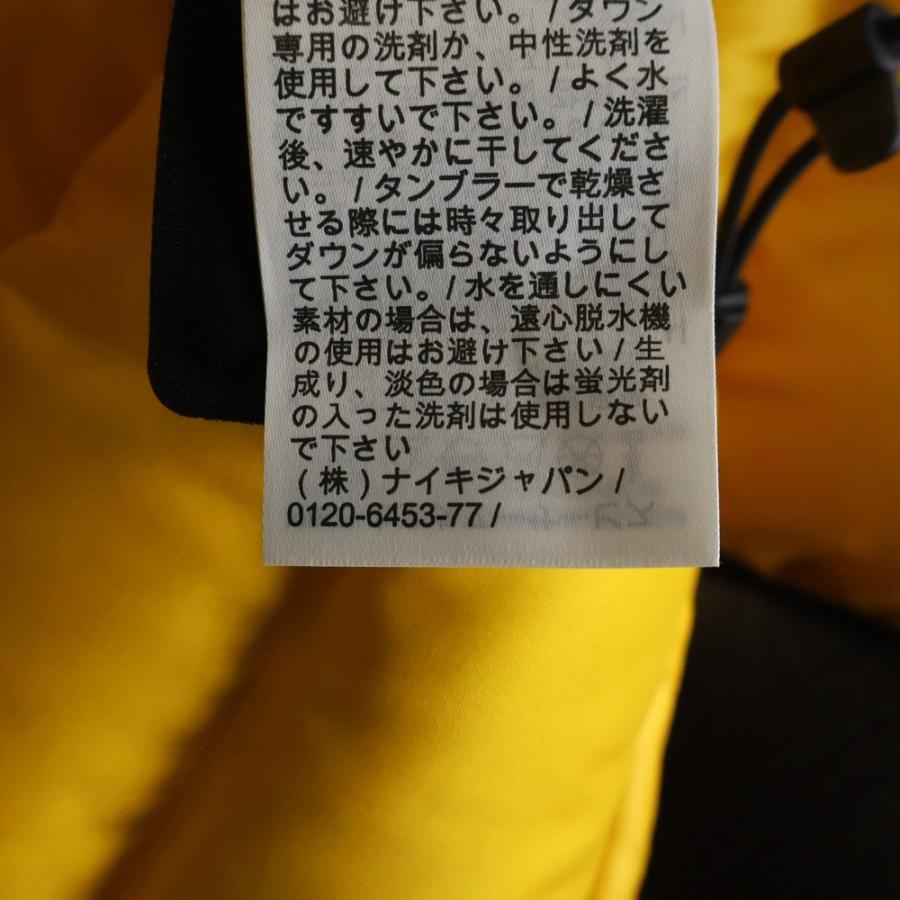 はお避け下さい。/ダウン
専用の洗剤か、中性洗剤を
使用して下さい。/よく水
ですすいで下さい。/洗濯
後、速やかに干してくださ
い。/タンブラーで乾燥さ
せる際には時々取り出して
ダウンが偏らないようにし
て下さい。/水を通しにくい
素材の場合は、遠心脱水機
の使用はお避け下さい/生
成り、淡色の場合は蛍光剤
の入った洗剤は使用しない
で下さい
(株)ナイキジャパン/
0120-6453-77/